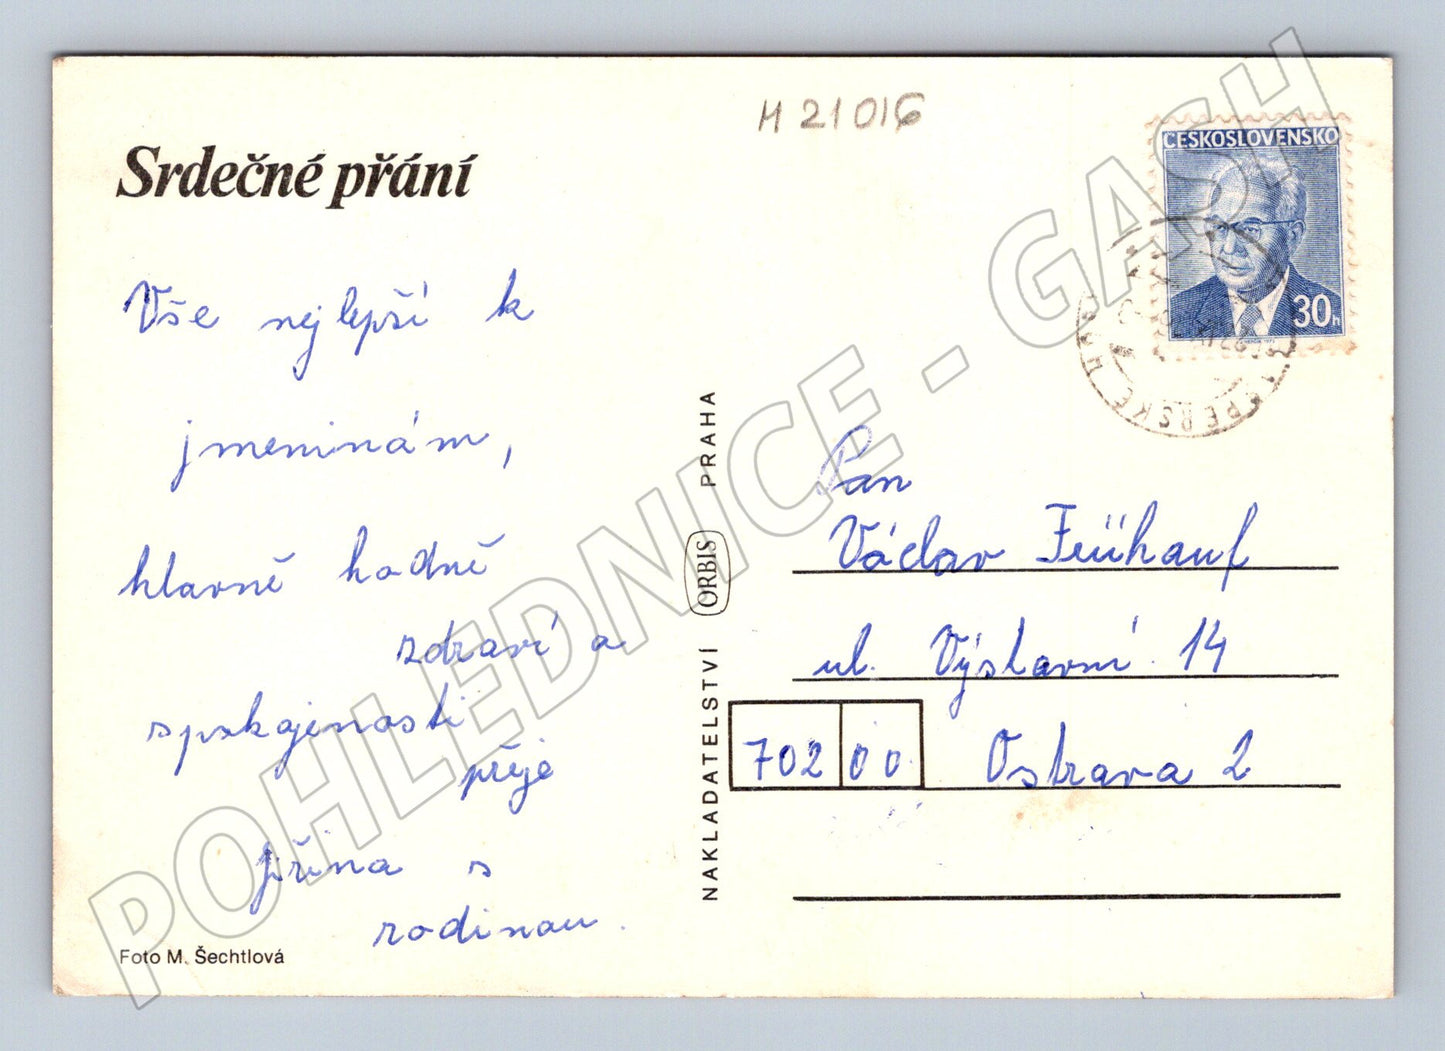 H 21016
ČESKOSLOVENSKO
30h
Srdečné přání
Vše nejlepší k
jmeninám,
hlavně hodně
zdraví a
spokojenosti
přeje
Jiřina s
rodinou.
Foto M. Šechtlová
NAKLADATELSTVÍ ORBIS PRAHA
Pan
Václav Frühauf
ul. Výstavní 14
702 00 Ostrava 2
POHLEDNICE - GASH